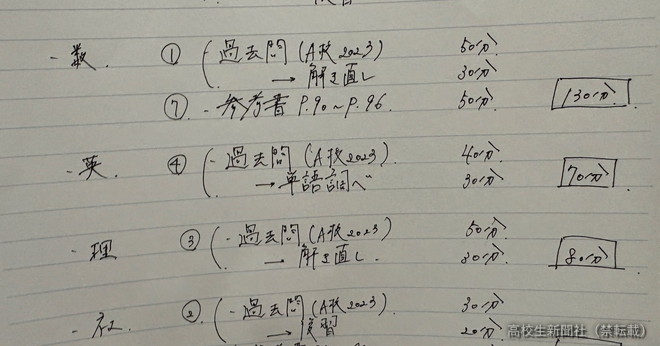 - 数. ① ( - 過去問 (A校2023) 50分.
→ 解き直し 30分.
⑦ - 参考書 P.90~P.96. 50分. 130分.
- 英. ④ ( - 過去問 (A校2023). 40分.
→ 単語調べ 30分. 70分.
- 理. ③ ( - 過去問 (A校2023) 50分.
→ 解き直し. 30分. 80分.
- 社. ② ( - 過去問 (A校2023) 30分.
→ 復習 20分.
高校生新聞社（禁転載）